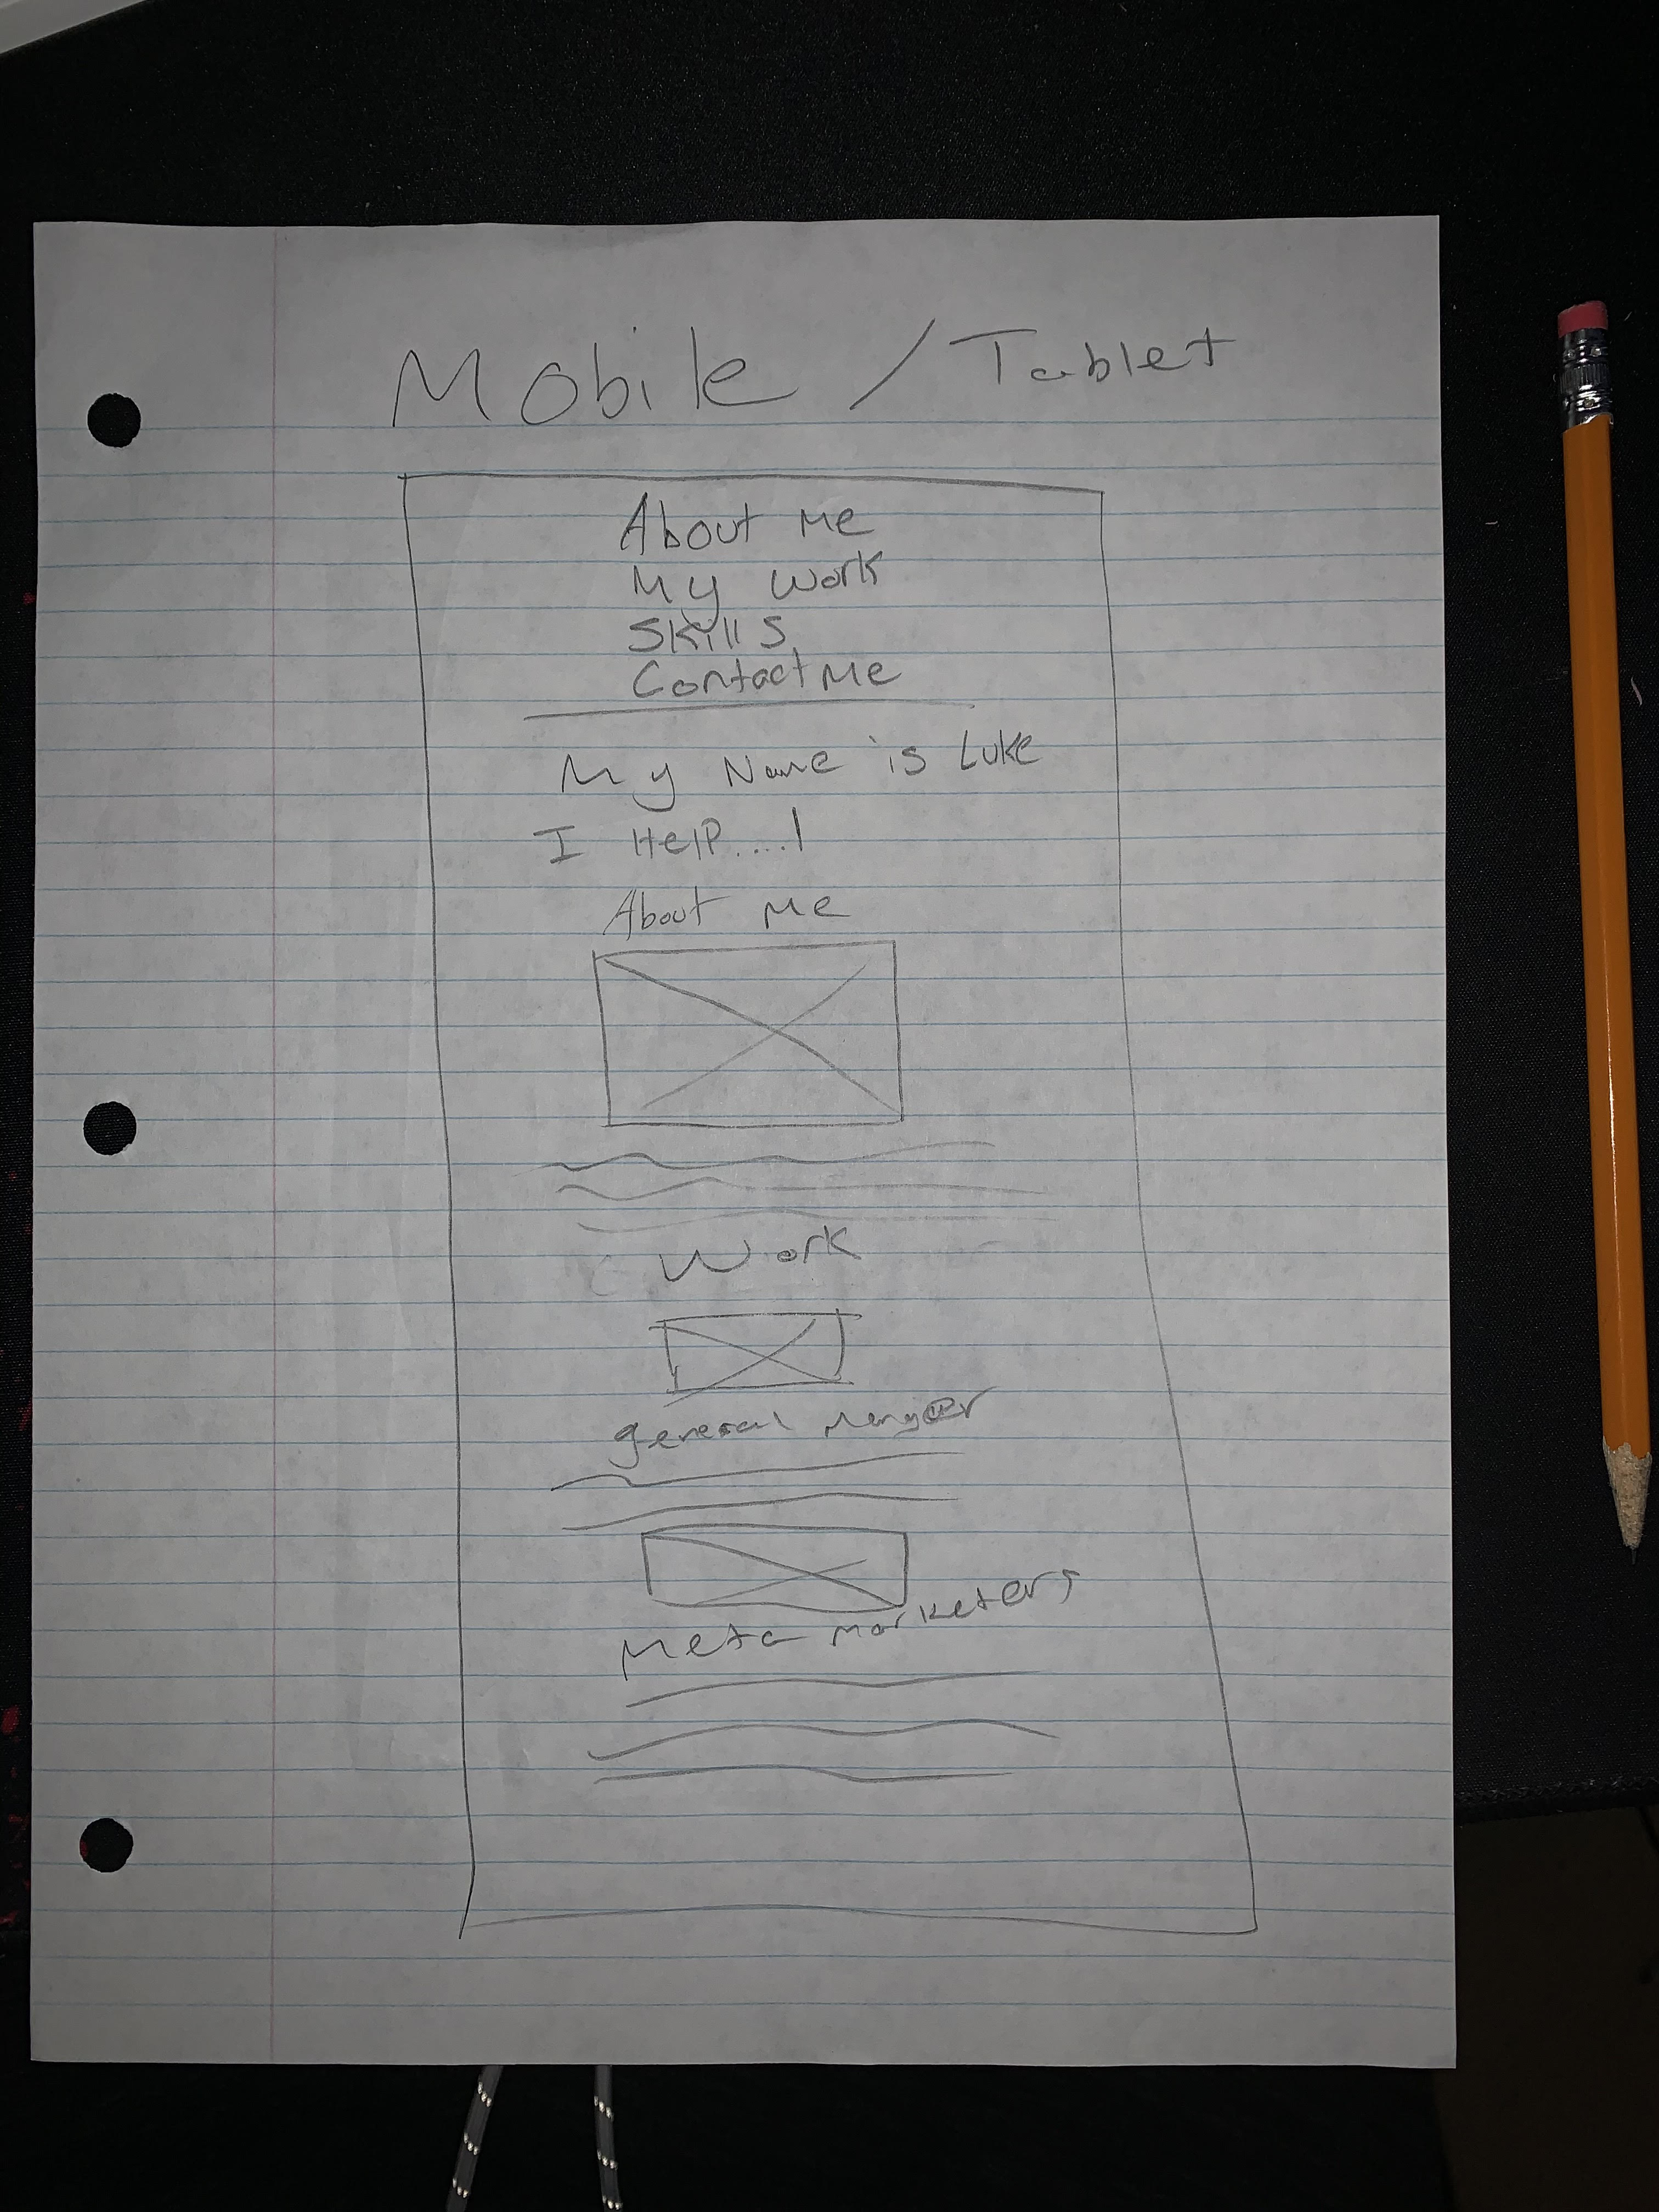 Mobile / Tablet
About Me
My Work
Skills
Contact Me
My Name is Luke
I Help....!
About Me
Work
general
Meta Marketers